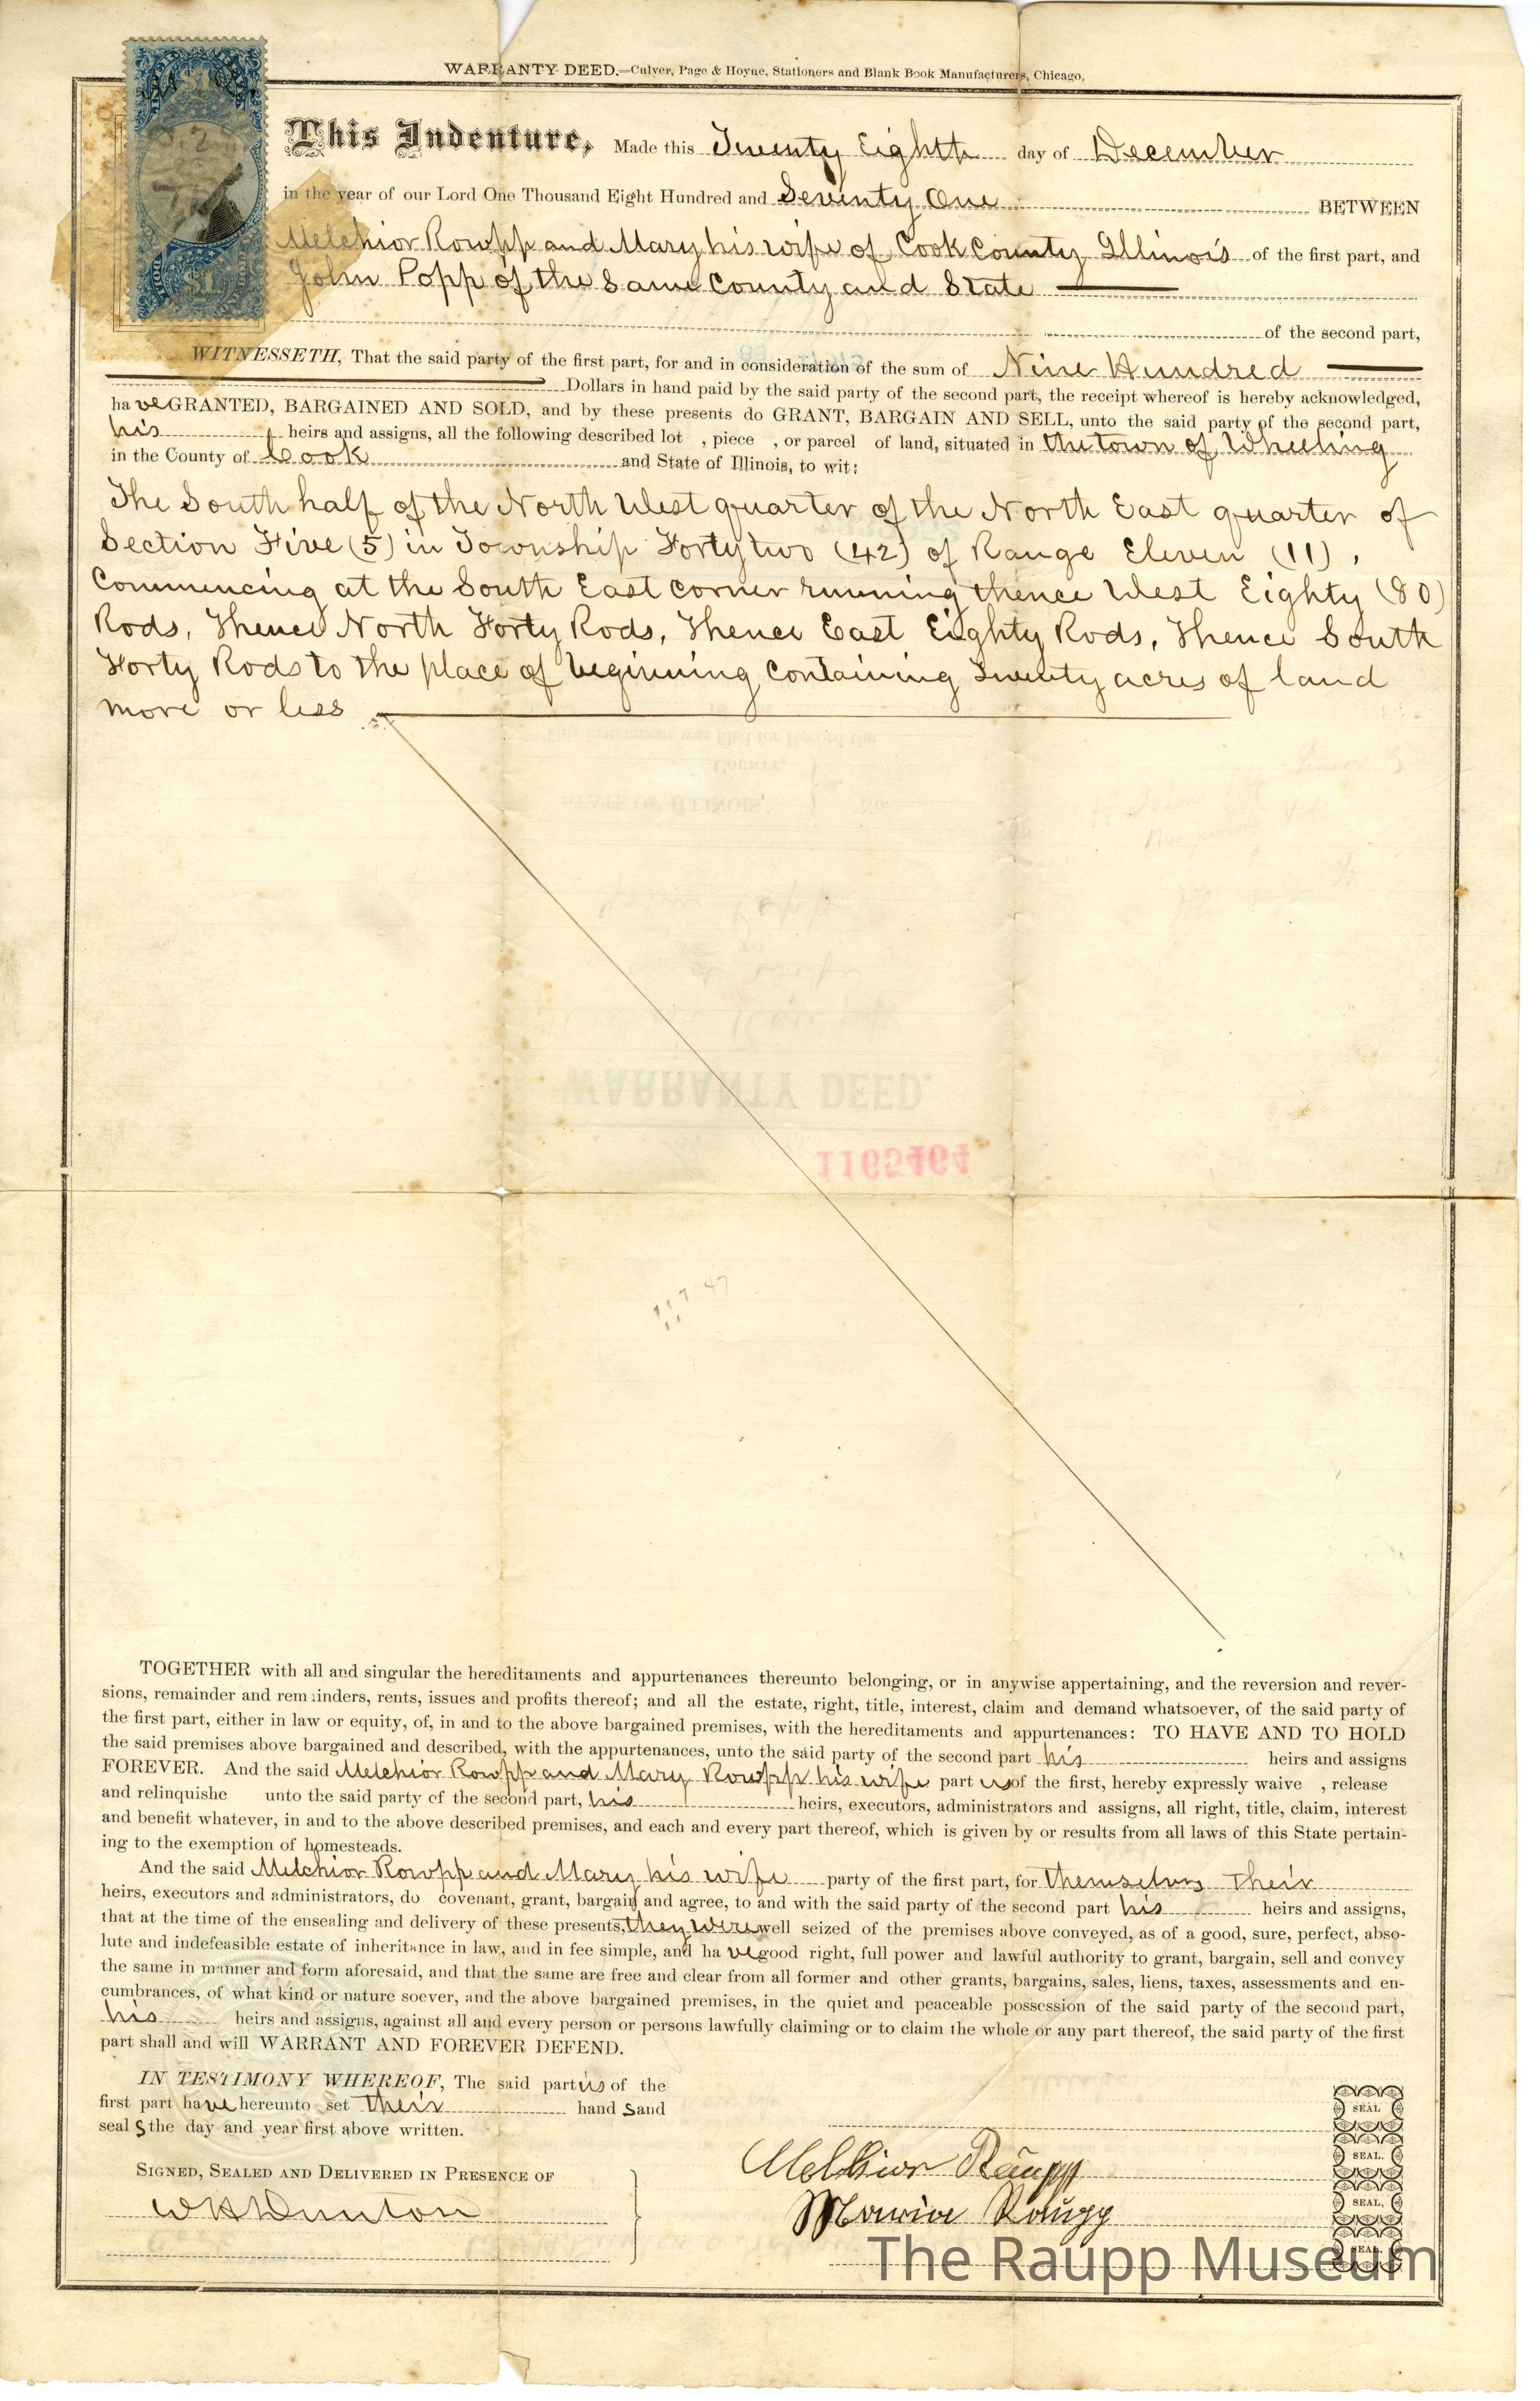 WARRANTY DEED.—Culver, Page & Hoyne, Stationers and Blank Book Manufacturers, Chicago,
This Indenture, Made this Twenty Eighth day of December
in the year of our Lord One Thousand Eight Hundred and Seventy One BETWEEN
Melchior Rowpp and Mary his wife of Cook County Illinois of the first part, and
John Popp of the Same County and State
of the second part,
WITNESSETH, That the said party of the first part, for and in consideration of the sum of Nine Hundred
Dollars in hand paid by the said party of the second part, the receipt whereof is hereby acknowledged,
ha ve GRANTED, BARGAINED AND SOLD, and by these presents do GRANT, BARGAIN AND SELL, unto the said party of the second part,
his heirs and assigns, all the following described lot , piece , or parcel of land, situated in the town of Wheeling
in the County of Cook and State of Illinois, to wit:
The South half of the North West quarter of the North East quarter of
Section Five (5) in Township Forty two (42) of Range Eleven (11) ,
Commencing at the South East corner running thence West Eighty (80)
Rods, Thence North Forty Rods, Thence East Eighty Rods, Thence South
Forty Rods to the place of beginning Containing Twenty acres of land
more or less
WARRANTY DEED.
1165464
TOGETHER with all and singular the hereditaments and appurtenances thereunto belonging, or in anywise appertaining, and the reversion and rever-
sions, remainder and remainders, rents, issues and profits thereof; and all the estate, right, title, interest, claim and demand whatsoever, of the said party of
the first part, either in law or equity, of, in and to the above bargained premises, with the hereditaments and appurtenances: TO HAVE AND TO HOLD
the said premises above bargained and described, with the appurtenances, unto the said party of the second part his heirs and assigns
FOREVER. And the said Melchior Rowpp and Mary Rowpp his wife part ies of the first, hereby expressly waive , release
and relinquishe unto the said party of the second part, his heirs, executors, administrators and assigns, all right, title, claim, interest
and benefit whatever, in and to the above described premises, and each and every part thereof, which is given by or results from all laws of this State pertain-
ing to the exemption of homesteads.
And the said Melchior Rowpp and Mary his wife party of the first part, for themselves their
heirs, executors and administrators, do covenant, grant, bargain and agree, to and with the said party of the second part his heirs and assigns,
that at the time of the ensealing and delivery of these presents, they were well seized of the premises above conveyed, as of a good, sure, perfect, abso-
lute and indefeasible estate of inheritance in law, and in fee simple, and ha ve good right, full power and lawful authority to grant, bargain, sell and convey
the same in manner and form aforesaid, and that the same are free and clear from all former and other grants, bargains, sales, liens, taxes, assessments and en-
cumbrances, of what kind or nature soever, and the above bargained premises, in the quiet and peaceable possession of the said party of the second part,
his heirs and assigns, against all and every person or persons lawfully claiming or to claim the whole or any part thereof, the said party of the first
part shall and will WARRANT AND FOREVER DEFEND.
IN TESTIMONY WHEREOF, The said part ies of the
first part have hereunto set their hand s and
seal s the day and year first above written.
SIGNED, SEALED AND DELIVERED IN PRESENCE OF
W H Dunton
Melchior Raupp
Marria Raupp
SEAL
SEAL.
SEAL.
SEAL.
The Raupp Museum